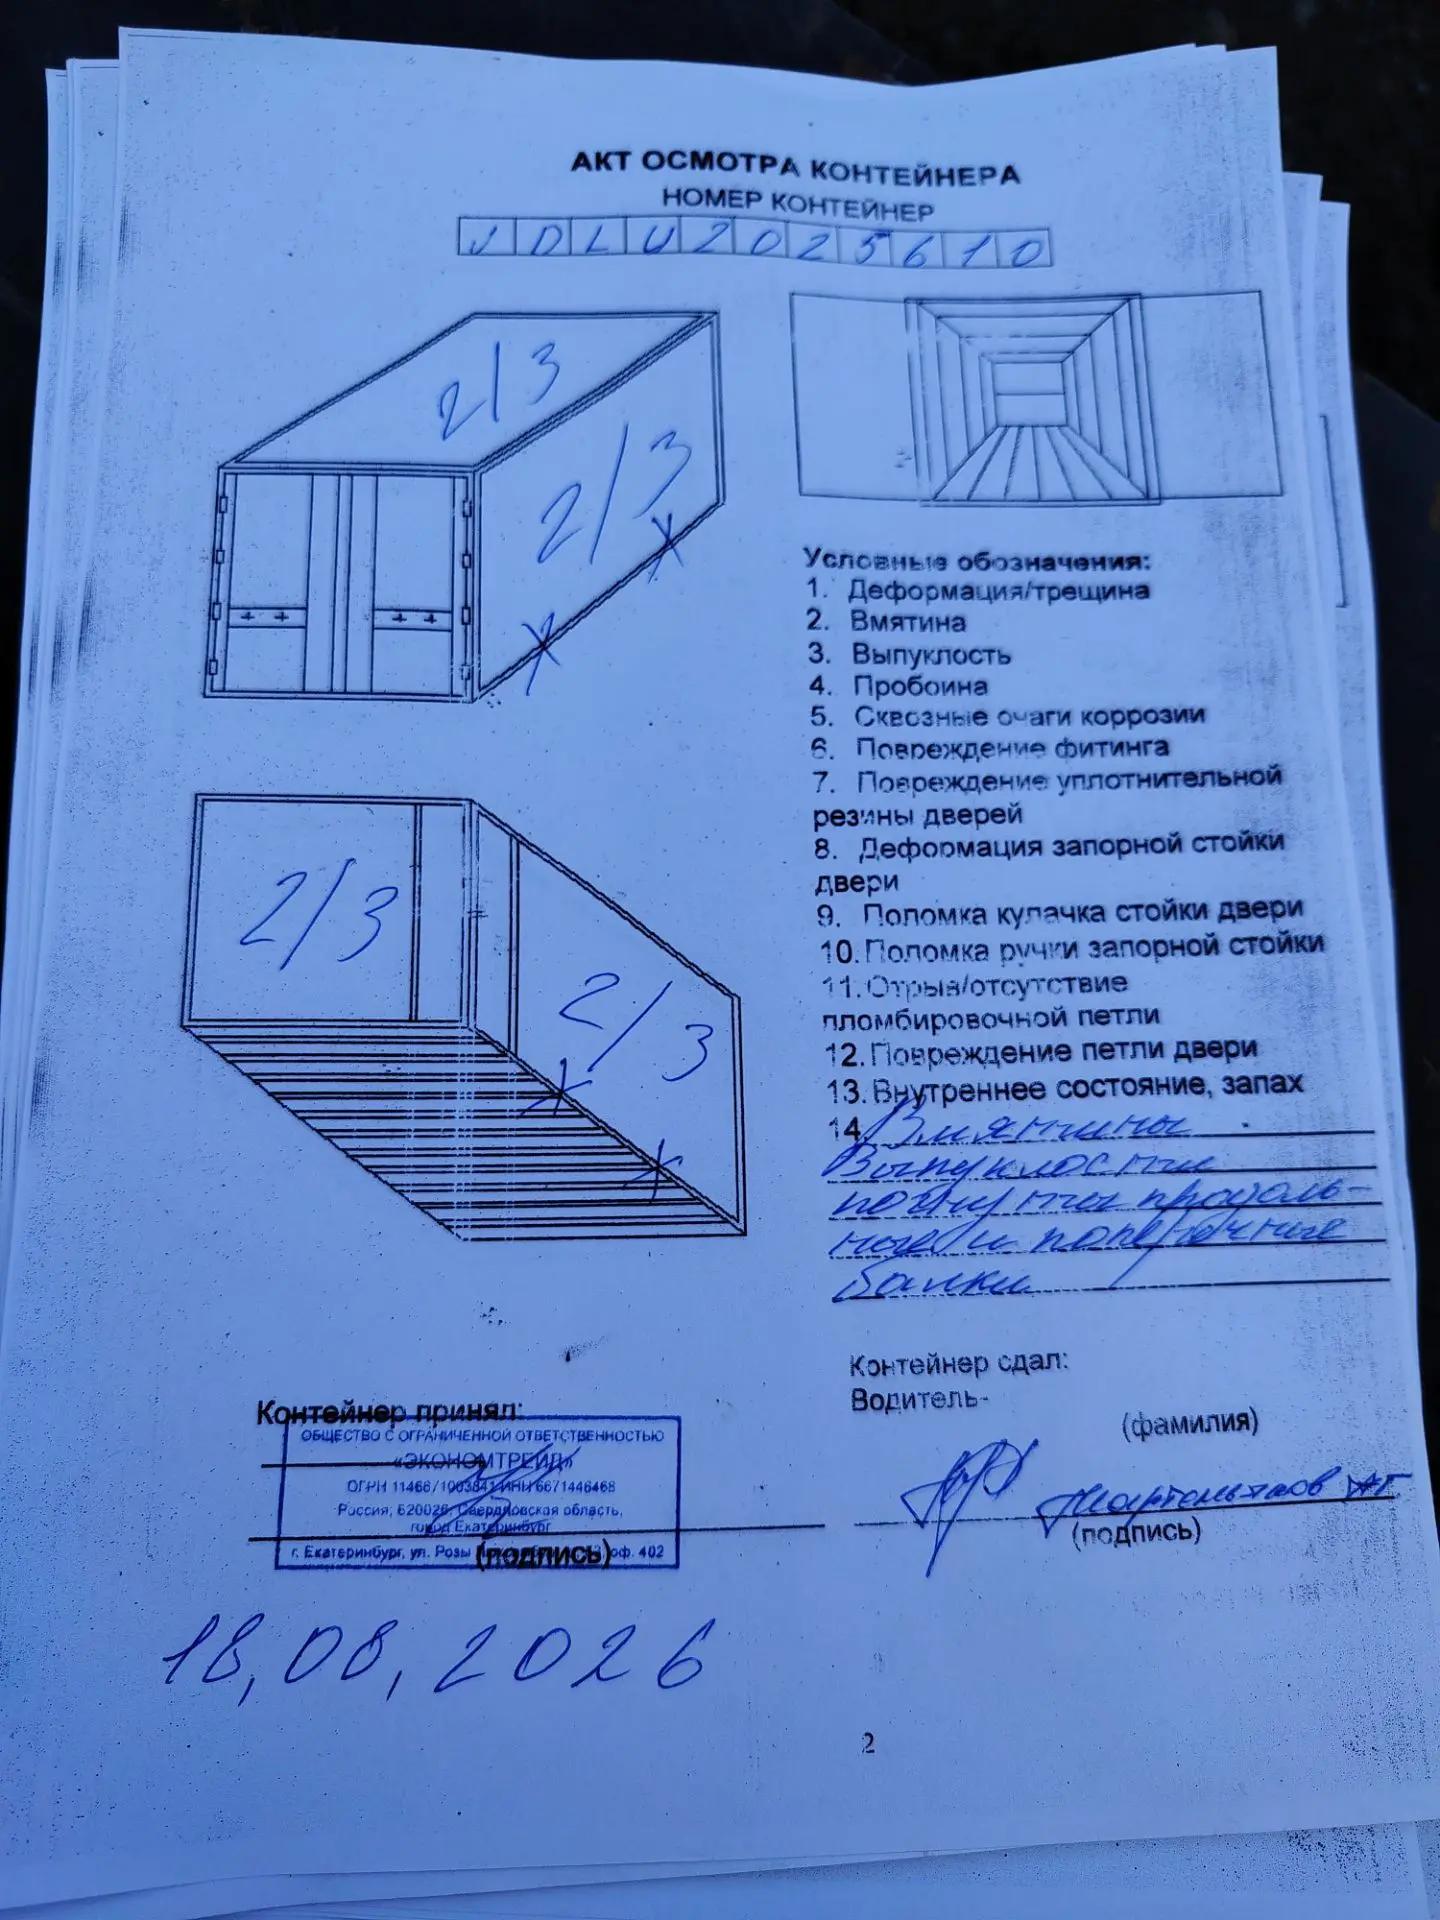 АКТ ОСМОТРА КОНТЕЙНЕРА
НОМЕР КОНТЕЙНЕР
JDLU2025610
2/3
2/3
2/3
2/3
Условные обозначения:
1. Деформация/трещина
2. Вмятина
3. Выпуклость
4. Пробоина
5. Сквозные очаги коррозии
6. Повреждение фитинга
7. Повреждение уплотнительной
резины дверей
8. Деформация запорной стойки
двери
9. Поломка кулачка стойки двери
10. Поломка ручки запорной стойки
11. Отрыв/отсутствие
пломбировочной петли
12. Повреждение петли двери
13. Внутреннее состояние, запах
14. Вмятины
Выпуклости
погнуты продоль-
ные и поперечные
балки
Контейнер сдал:
Водитель-
(фамилия)
(подпись)
Контейнер принял:
ОБЩЕСТВО С ОГРАНИЧЕННОЙ ОТВЕТСТВЕННОСТЬЮ
«ЭКОНОМТРЕЙД»
ОГРН ИНН 6671446468
Россия, 620026, Свердловская область,
город Екатеринбург
г. Екатеринбург, ул. Розы оф. 402
(подпись)
18,08,2026
2